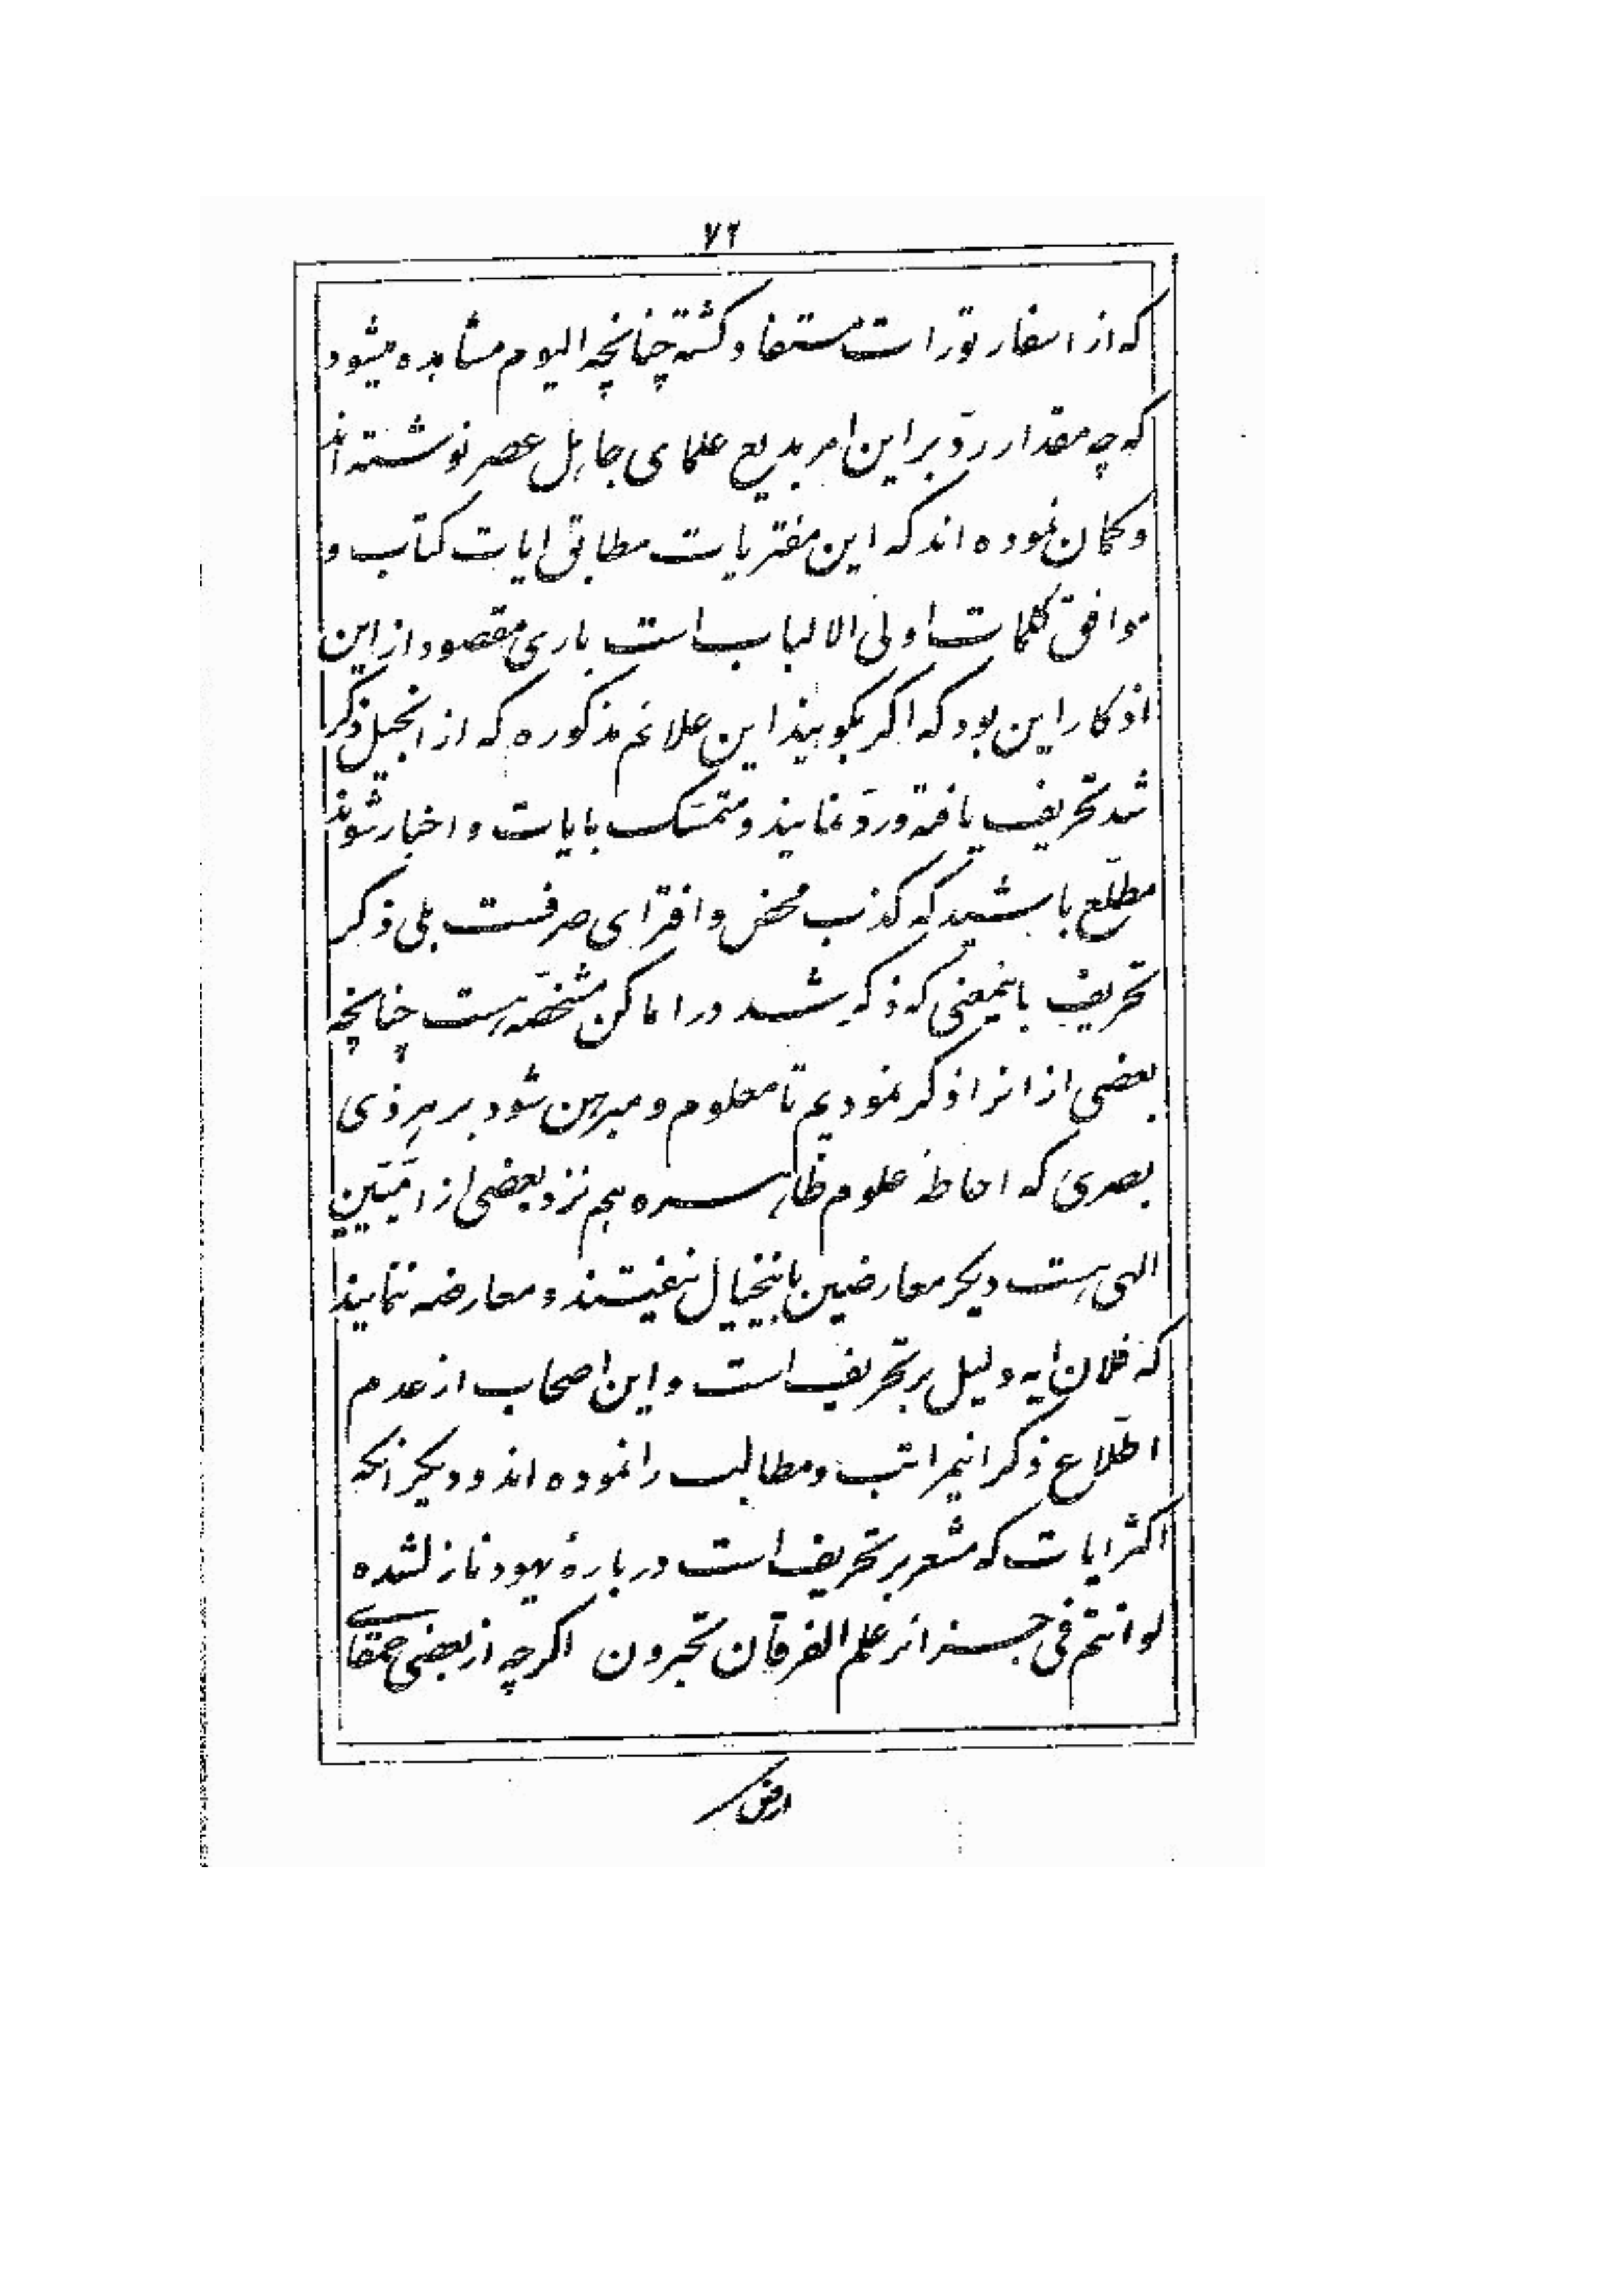 ٧٢
که از اسفار تورات مستفاد گشته چنانچه الیوم مشاهده میشود
که چه مقدار ردّ بر این امر بدیع علمای جاهل عصر نوشته‌اند
و گمان نموده‌اند که این مفتریات مطابق ایات کتاب و
موافق کلمات اولی الالباب است باری مقصود از این
اذکار این بود که اگر بگویند این علائم مذکوره که از انجیل ذکر
شد تحریف یافته و ردّ نمایند و متمسّک بایات و اخبار شوند
مطّلع باشید که کذب محض و افترای صرفست بلی ذکر
تحریف باینمعنی که ذکر شد در اماکن مشخّصه هست چنانچه
بعضی از انرا ذکر نمودیم تا معلوم و مبرهن شود بر هر ذی
بصری که احاطهٔ علوم ظاهره هم نزد بعضی از امّیّین
الهی هست دیگر معارضین باینخیال نیفتند و معارضه ننمایند
که فلان ایه دلیل بر تحریف است و این اصحاب از عدم
اطّلاع ذکر اینمراتب و مطالب را نموده‌اند و دیگر انکه
اکثر ایات که مشعر بر تحریف است در بارهٔ یهود نازل شده
لو انتم فی جزائر علم الفرقان تحبرون اگرچه از بعضی حمقای
ارض